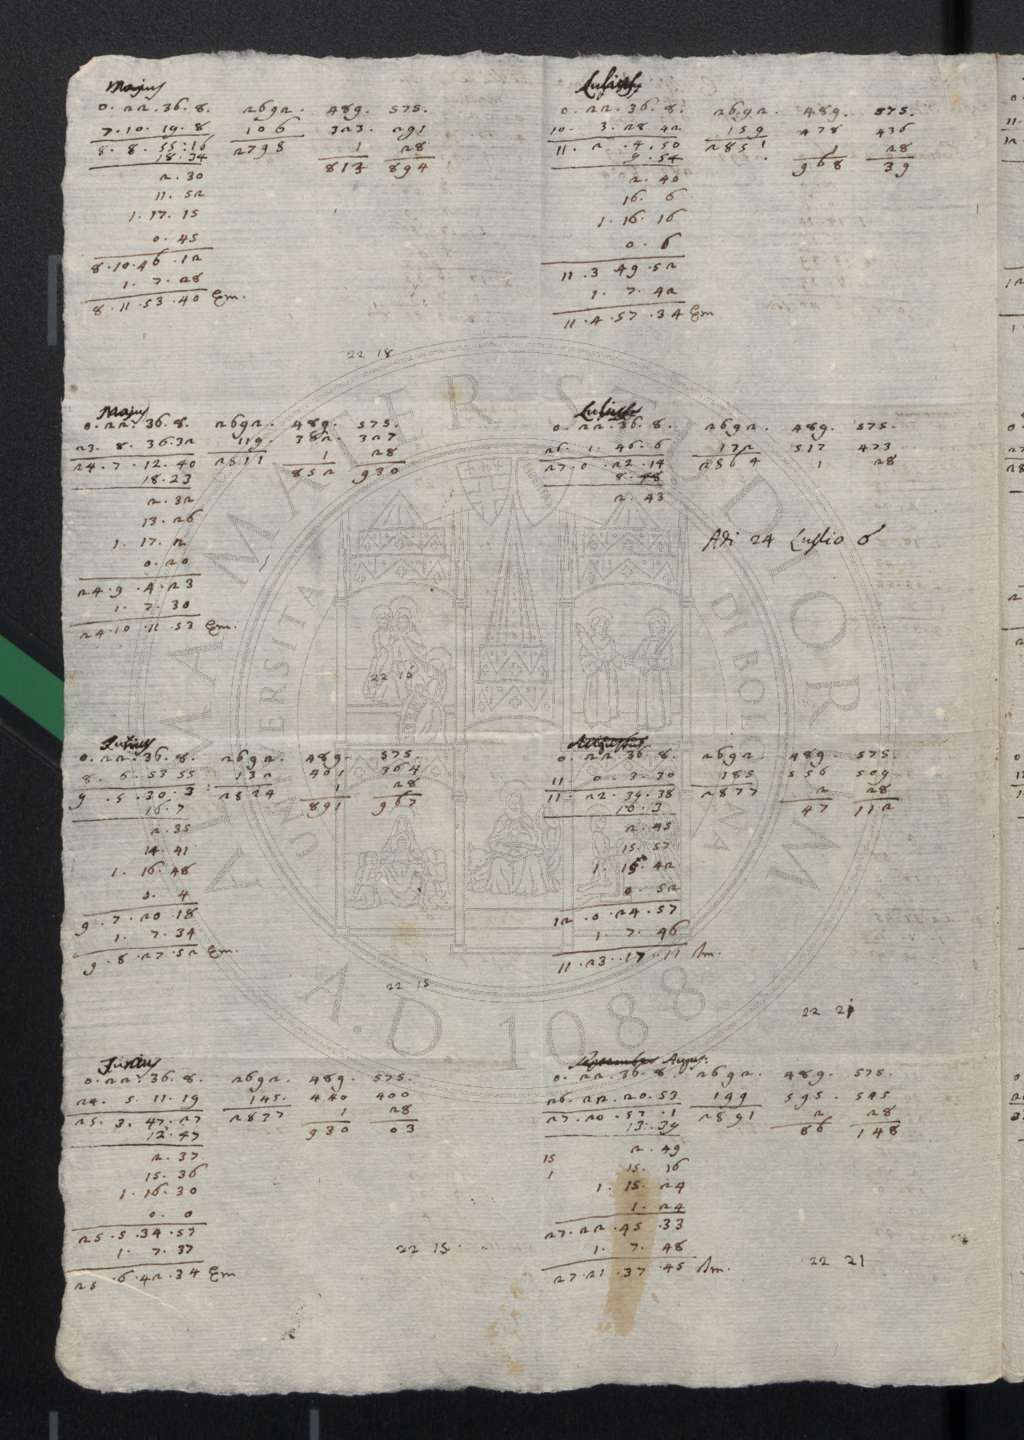 Majus
0. 22. 36. 8. 2692. 489. 575.
7. 10. 19. 8 106 323. 291
8. 8. 55. 16 2798 1 28
18. 34 813 894
2. 30
11. 52
1. 17. 15
0. 45
8. 10. 46. 12
1. 7. 28
8. 11. 53. 40 Em.
22 18
Majus
0. 22. 36. 8. 2692. 489. 575.
23. 8. 36. 32 119. 362. 327
24. 7. 12. 40 2811 1 28
18. 23 852 930
2. 32
13. 26
1. 17. 2
0. 20
24. 9. 4. 23
1. 7. 30
24. 10. 11. 53 Em.
22 15
Junius
0. 22. 36. 8. 2692. 489. 575.
8. 6. 53 55 132 401 364
9. 5. 30. 3 2824 1 28
16. 7 891 967
2. 35
14. 41
1. 16. 48
0. 4
9. 7. 20. 18
1. 7. 34
9. 8. 27. 52 Em.
22 15
Junius
0. 22. 36. 8. 2692. 489. 575.
24. 5. 11. 19 145. 440 400
25. 3. 47. 27 2837 1 28
12. 47 930 03
2. 37
15. 36
1. 16. 30
0. 0
25. 5. 34. 57
1. 7. 37
25. 6. 42. 34 Em
22 15
Julius
0. 22. 36. 8. 2692. 489. 575.
10. 3. 28 42 159 478 436
11. 2. 4. 50 2851 1 28
9. 54 968 39
2. 40
16. 6
1. 16. 16
0. 6
11. 3 49. 52
1. 7. 42
11. 4. 57. 34 Em
Julius
0. 22. 36. 8. 2692. 489. 575.
26. 1. 46. 6 172 517 473
27. 0. 22. 14 2864 1 28
8. 48
2. 43
Adi 24 Luglio 6
Augustus
0. 22. 36. 8 2692. 489. 575.
11 0. 3. 30 185 556 509
11. 22. 39. 38 2877 2 28
10. 3 47 112
2. 45
15. 57
1. 15. 42
0. 52
12. 0. 24. 57
1. 7. 46
11. 23. 17. 11 Am.
22 21
September Augus:
0. 22. 36. 8. 2692. 489. 575.
26. 22. 20. 53 199 595. 545
27. 20. 57. 1 2891 2 28
13. 39 86 148
15 2. 49
1 15. 16
1. 15. 24
1. 24
27. 22. 45. 33
1. 7. 48
27. 21. 37. 45 Am.
22 21
ALMA MATER STUDIORUM
UNIVERSITÀ DI BOLOGNA
A.D. 1088